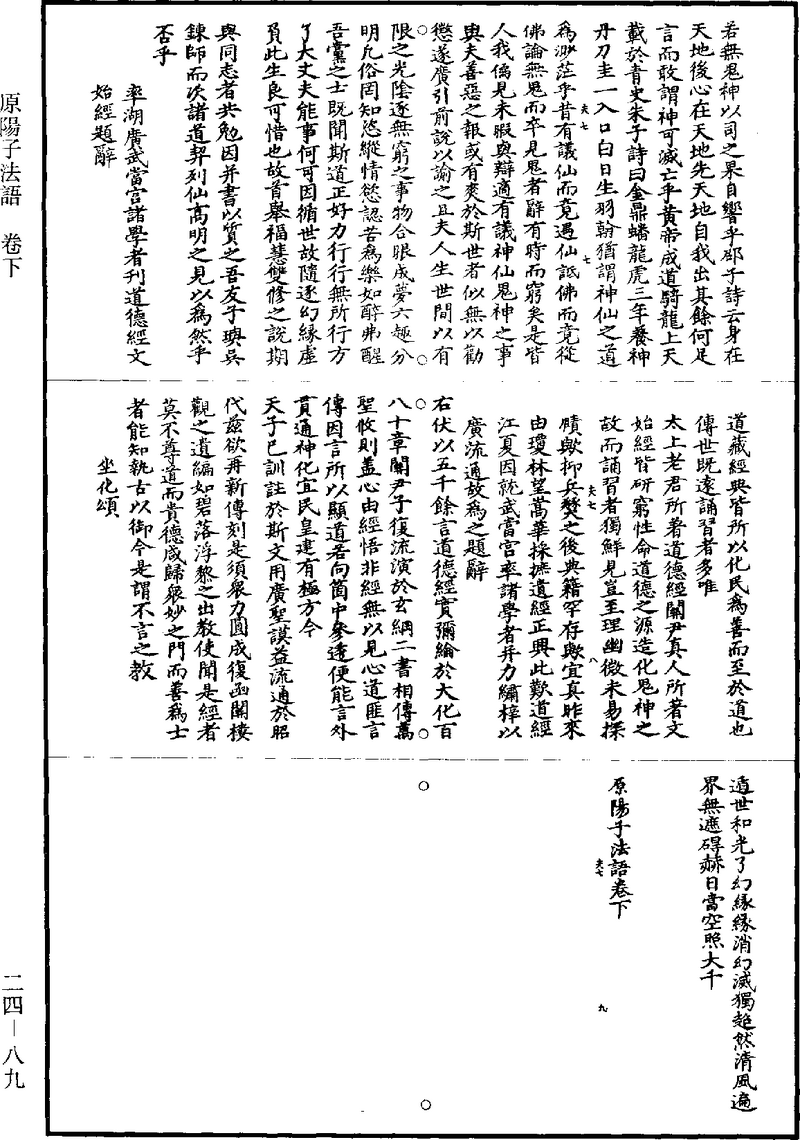 若無鬼神以司之果自響乎邵子詩云身在
天地後心在天地先天地自我出其餘何足
言而敢謂神可滅亡乎黃帝成道騎龍上天
載於青史朱子詩曰金鼎蟠龍虎三年養神
丹刀圭一入口白日生羽翰猶謂神仙之道
爲渺茫乎昔有議仙而竟遇仙詆佛而竟從
佛論無鬼而卒見鬼者辭有時而窮矣是皆
人我偏見未暇與辯適有議神仙鬼神之事
與夫善惡之報或有爽於斯世者似無以勸
懲遂廣引前說以諭之且夫人生世間以有
限之光陰逐無窮之事物合眼成夢六趣分
明凡俗罔知恣縱情慾認苦爲樂如醉弗醒
吾黨之士既聞斯道正好力行行無所行方
了大丈夫能事何可因循世故隨逐幻緣虛
負此生良可惜也故首舉福慧雙修之說期
與同志者共勉因并書以質之吾友子璵吳
鍊師而次諸道契列仙高明之見以爲然乎
否乎
率湖廣武當宮諸學者刊道德經文
始經題辭
道藏經典皆所以化民爲善而至於道也
傳世既遠誦習者多唯
太上老君所著道德經關尹真人所著文
始經皆研窮性命道德之源造化鬼神之
故而誦習者獨鮮見豈至理幽微未易探
賾歟抑兵燹之後典籍罕存歟宜真昨來
由瓊林望嵩華採摭遺經正興此歎道經
江夏因就武當宮率諸學者并力繡梓以
廣流通故爲之題辭
右伏以五千餘言道德經實彌綸於大化百
八十章關尹子復流演於玄綱二書相傳萬
聖攸則盖心由經悟非經無以見心道匪言
傳因言所以顯道若向箇中參透便能言外
貫通神化宜民皇建有極方今
天子已訓註於斯文用廣聖謨益流通於昭
代茲欲再新傳刻是須衆力圓成復函關樓
觀之遺編如碧落浮黎之出教使聞是經者
莫不尊道而貴德咸歸衆妙之門而善爲士
者能知執古以御今是謂不言之教
坐化頌
遁世和光了幻緣緣消幻滅獨超然清風遍
界無遮碍赫日當空照大千
原陽子法語卷下
夫七
七
夫七
八
夫七
九
原陽子法語 卷下
二四－八九